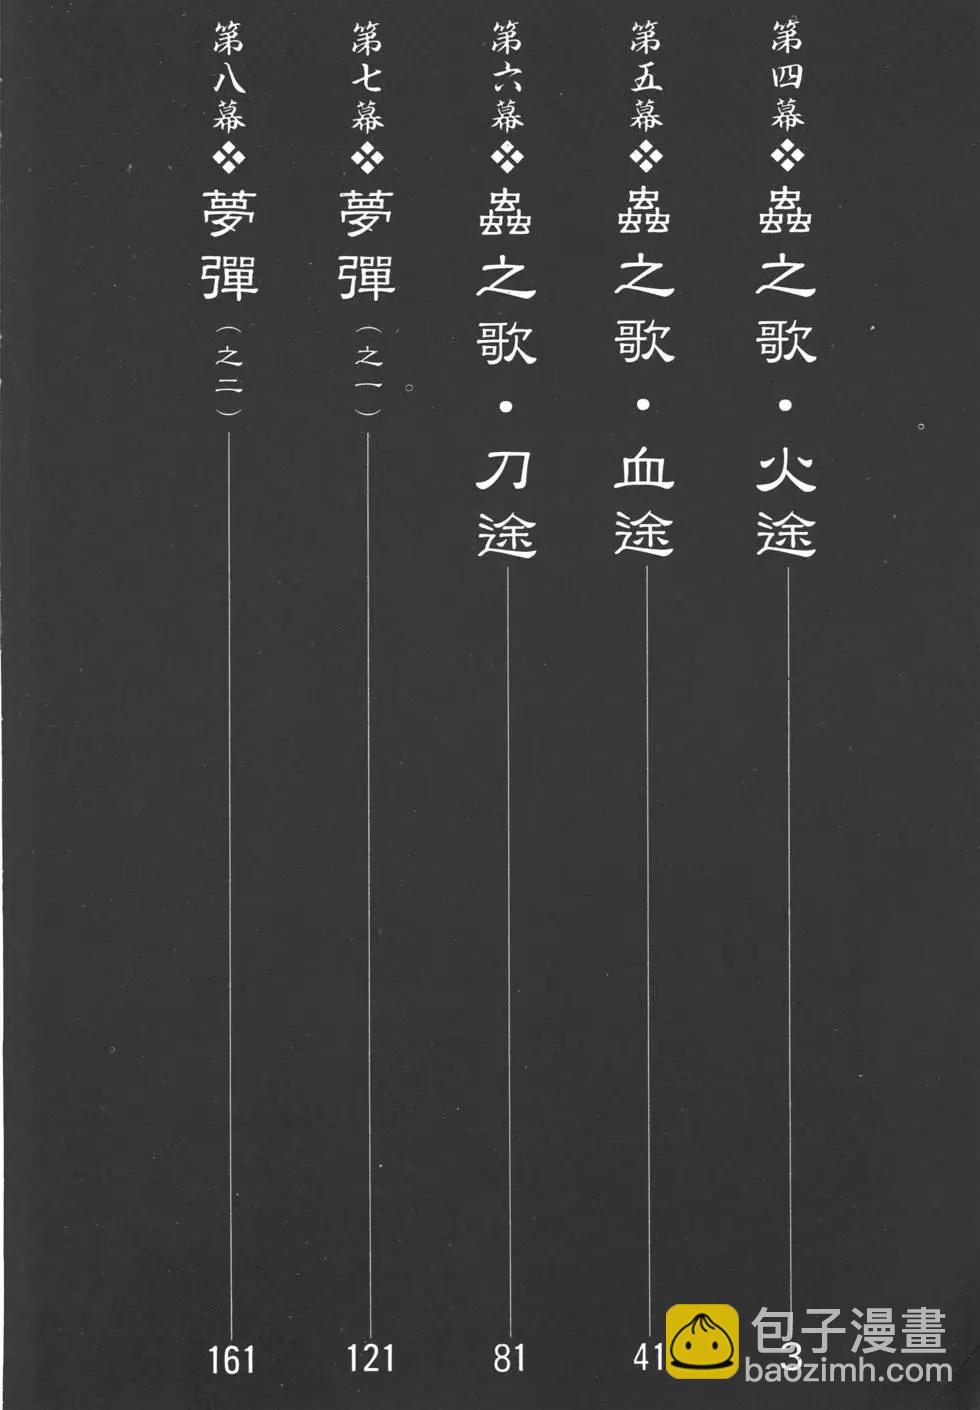 第四幕❖蟲之歌・火途 3
第五幕❖蟲之歌・血途 41
第六幕❖蟲之歌・刀途 81
第七幕❖夢彈(之一) 121
第八幕❖夢彈(之二) 161
包子漫畫
baozimh.com